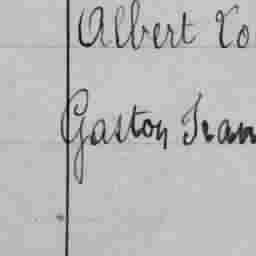 Albert Lo
Gaston Fran